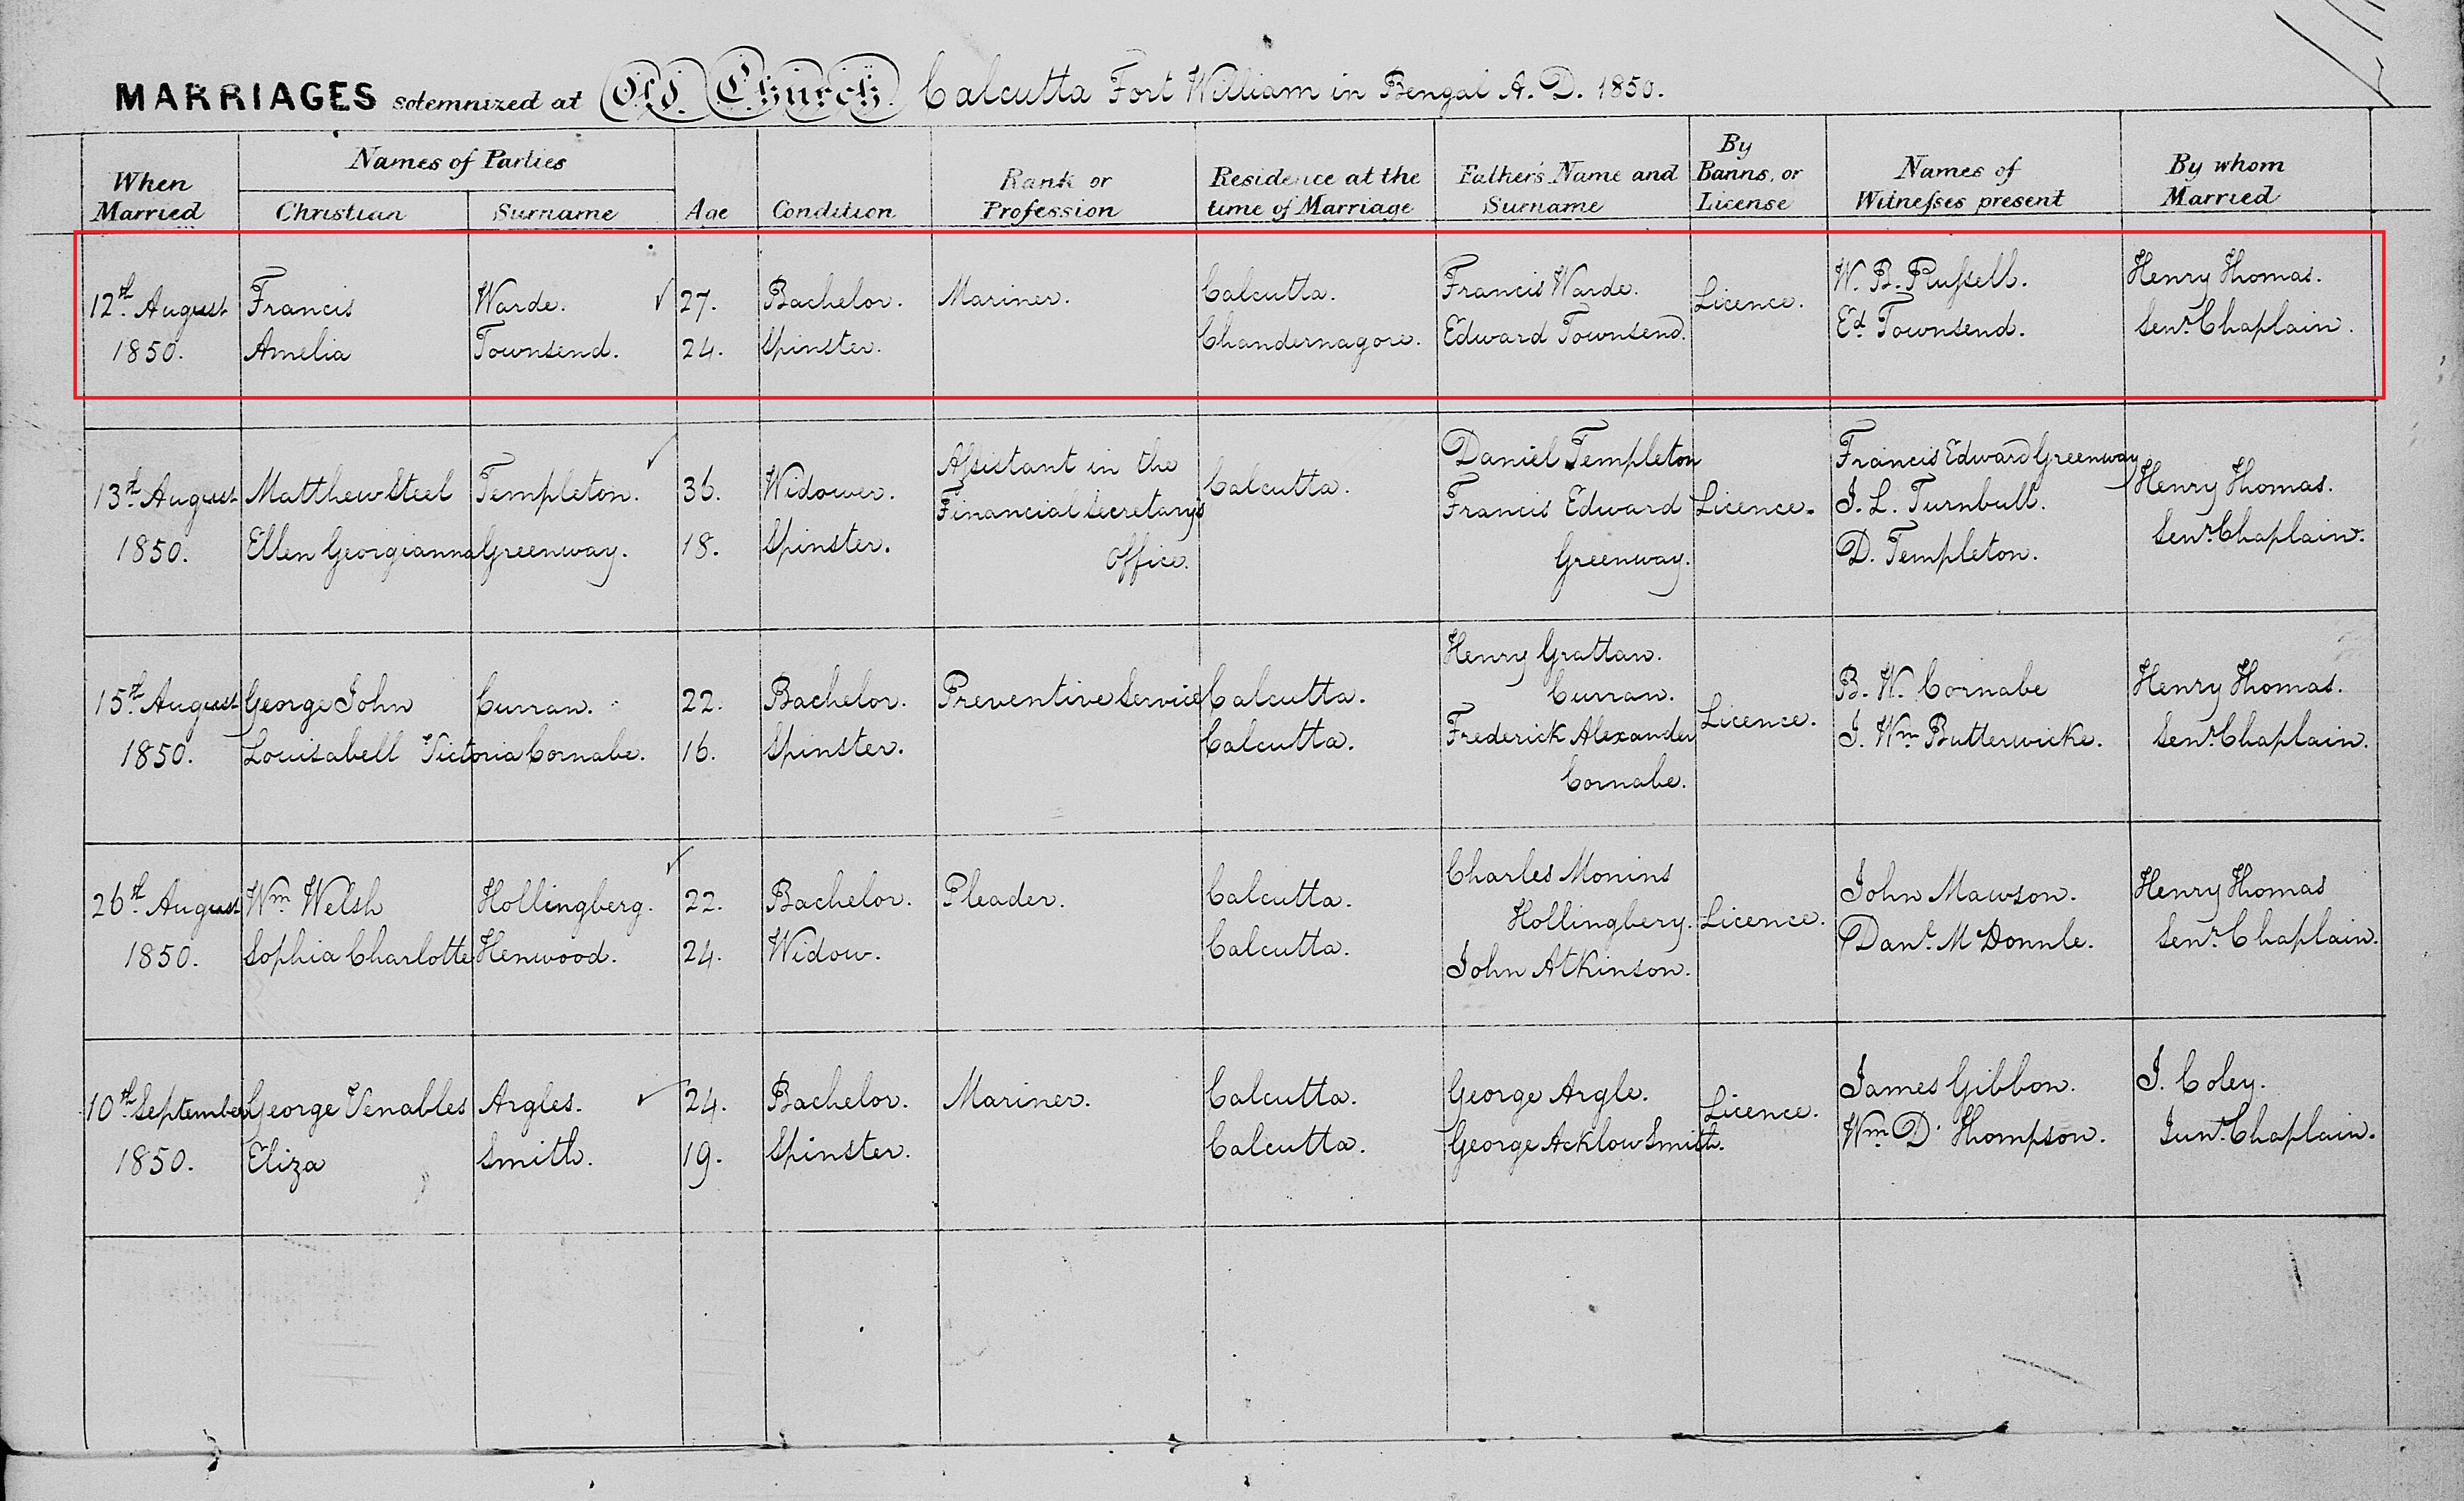 MARRIAGES solemnized at Old Church Calcutta Fort William in Bengal A. D. 1850.
When Married
Names of Parties
Christian
Surname
Age
Condition
Rank or Profession
Residence at the time of Marriage
Father's Name and Surname
By Banns, or License
Names of Witnesses present
By whom Married
12th August 1850.
Francis Warde. 27. Bachelor. Mariner. Calcutta. Francis Warde.
Amelia Townsend. 24. Spinster. Chandernagore. Edward Townsend.
Licence.
W. B. Russell.
Ed Townsend.
Henry Thomas.
Senr Chaplain.
13th August 1850.
Matthew Steel Templeton. 36. Widower. Assistant in the Financial Secretary's Office. Calcutta. Daniel Templeton
Ellen Georgianna Greenway. 18. Spinster. Francis Edward Greenway.
Licence.
Francis Edward Greenway
J. L. Turnbull.
D. Templeton.
Henry Thomas.
Senr Chaplain.
15th August 1850.
George John Curran. 22. Bachelor. Preventive Service Calcutta. Henry Grattan. Curran.
Louisabell Victoria Cornabe. 16. Spinster. Calcutta. Frederick Alexander Cornabe.
Licence.
B. W. Cornabe
J. Wm Butterwicke.
Henry Thomas.
Senr Chaplain.
26th August 1850.
Wm Welsh Hollingberg. 22. Bachelor. Pleader. Calcutta. Charles Monins Hollingbery.
Sophia Charlotte Henwood. 24. Widow. Calcutta. John Atkinson.
Licence.
John Mawson.
Danl McDonnle.
Henry Thomas
Senr Chaplain.
10th September 1850.
George Venables Argles. 24. Bachelor. Mariner. Calcutta. George Argle.
Eliza Smith. 19. Spinster. Calcutta. George Acklow Smith.
Licence.
James Gibbon.
Wm D. Thompson.
J. Coley.
Junr Chaplain.